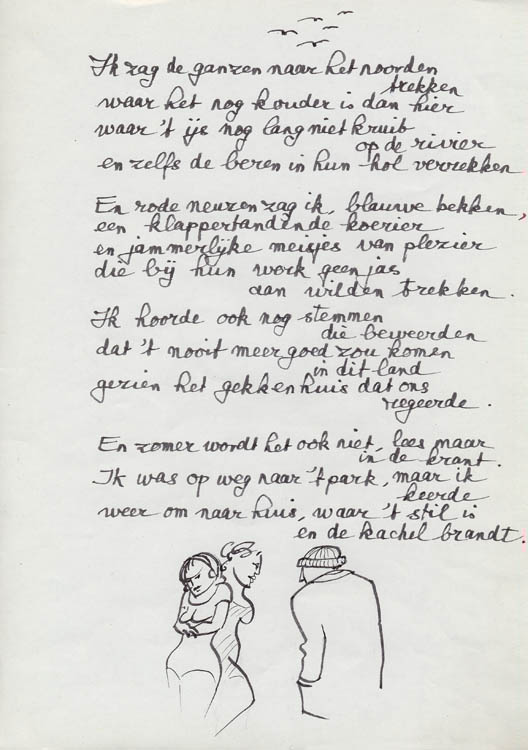 Ik zag de ganzen naar het noorden
trekken
waar het nog kouder is dan hier
waar 't ijs nog lang niet kruit
op de rivier
en zelfs de beren in hun hol verrekken
En rode neuzen zag ik, blauwe bekken,
een klappertandende koerier
en jammerlijke meisjes van plezier
die bij hun werk geen jas
aan wilden trekken.
Ik hoorde ook nog stemmen
die beweerden
dat 't nooit meer goed zou komen
in dit land
gezien het gekkenhuis dat ons
regeerde.
En zomer wordt het ook niet, lees maar
in de krant.
Ik was op weg naar 't park, maar ik
keerde
weer om naar huis, waar 't stil is
en de kachel brandt.